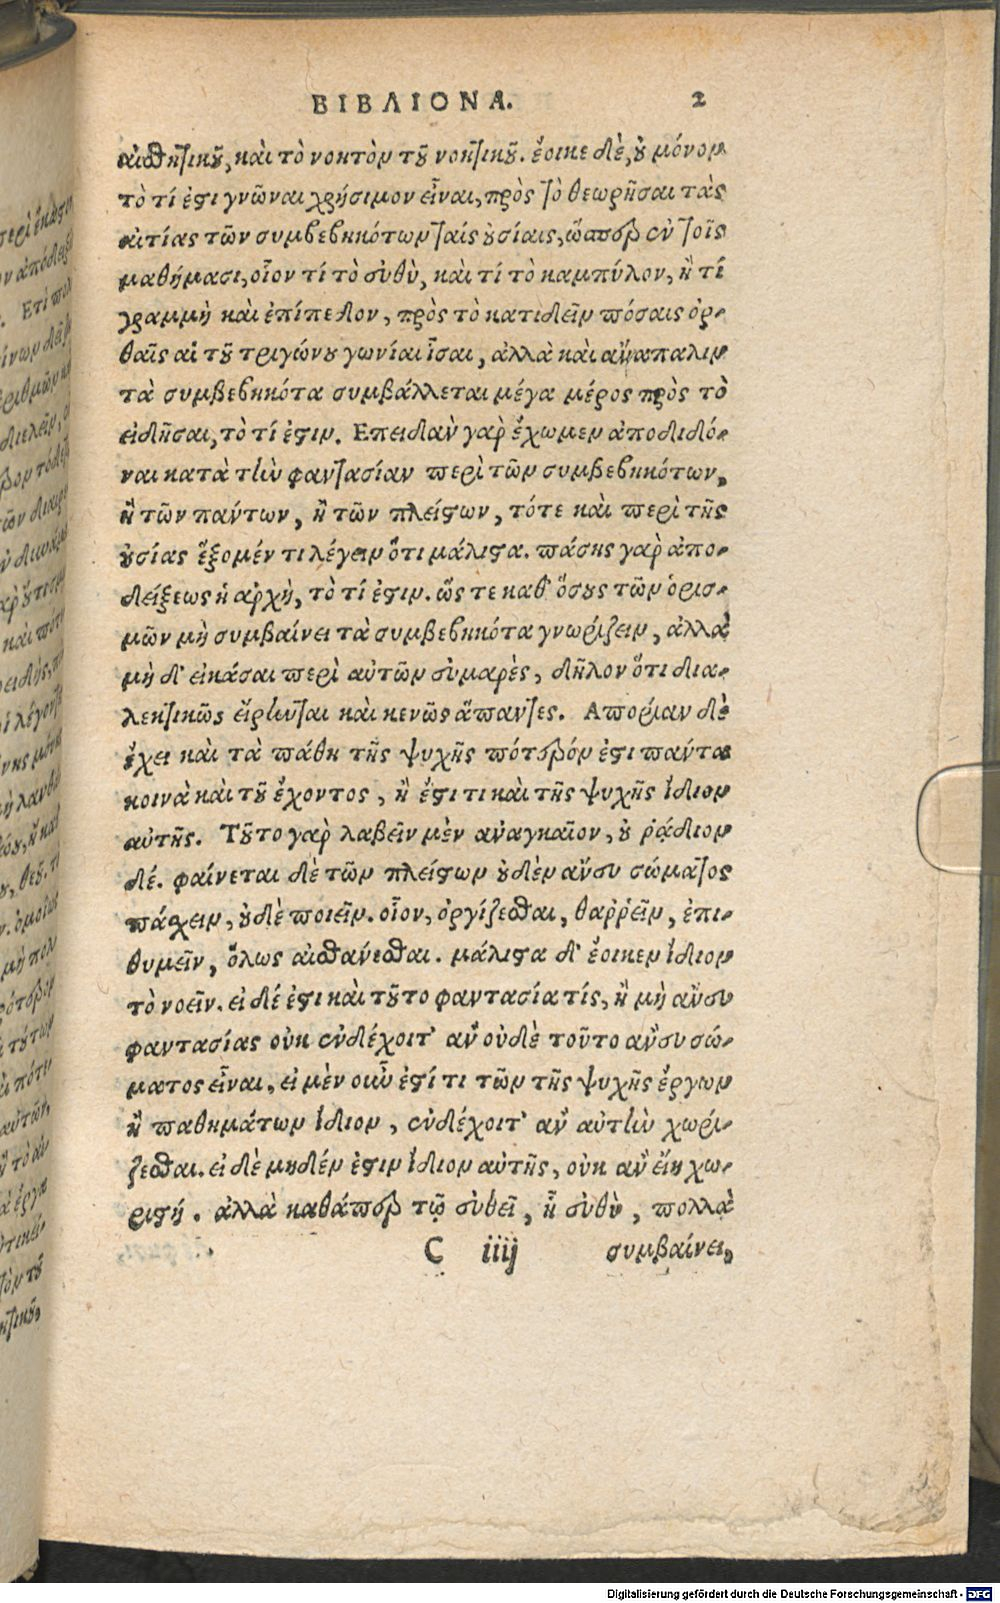 ΒΙΒΛΙΟΝ Α. 2
αἰσθητικοῦ, καὶ τὸ νοητὸν τοῦ νοητικοῦ. ἔοικε δὲ, οὐ μόνον
τὸ τί ἐστι γνῶναι χρήσιμον εἶναι, πρὸς τὸ θεωρῆσαι τὰς
αἰτίας τῶν συμβεβηκότων ταῖς οὐσίαις, ὥσπερ ἐν τοῖς
μαθήμασι, οἷον τί τὸ εὐθὺ, καὶ τί τὸ καμπύλον, ἢ τί
γραμμὴ καὶ ἐπίπεδον, πρὸς τὸ κατιδεῖν πόσαις ὀρ-
θαῖς αἱ τοῦ τριγώνου γωνίαι ἴσαι, ἀλλὰ καὶ ἀνάπαλιν
τὰ συμβεβηκότα συμβάλλεται μέγα μέρος πρὸς τὸ
εἰδῆσαι, τὸ τί ἐστιν. Επειδὰν γὰρ ἔχωμεν ἀποδιδό-
ναι κατὰ τὴν φαντασίαν περὶ τῶν συμβεβηκότων,
ἢ τῶν πάντων, ἢ τῶν πλείστων, τότε καὶ περὶ τῆς
οὐσίας ἕξομέν τι λέγειν ὅτι μάλιστα. πάσης γὰρ ἀπο-
δείξεως ἡ ἀρχὴ, τὸ τί ἐστιν. ὥς τε καθ' ὅσους τῶν ὁρισ-
μῶν μὴ συμβαίνει τὰ συμβεβηκότα γνωρίζειν, ἀλλὰ
μὴ δ' εἰκάσαι περὶ αὐτῶν εὐμαρὲς, δῆλον ὅτι δια-
λεκτικῶς εἴρηνται καὶ κενῶς ἅπαντες. Απορίαν δὲ
ἔχει καὶ τὰ πάθη τῆς ψυχῆς πότερόν ἐστι πάντα
κοινὰ καὶ τοῦ ἔχοντος, ἢ ἔστι τι καὶ τῆς ψυχῆς ἴδιον
αὐτῆς. Τοῦτο γὰρ λαβεῖν μὲν ἀναγκαῖον, οὐ ῥᾴδιον
δέ. φαίνεται δὲ τῶν πλείστων οὐδὲν ἄνευ σώματος
πάσχειν, οὐδὲ ποιεῖν. οἷον, ὀργίζεσθαι, θαῤῥεῖν, ἐπι-
θυμεῖν, ὅλως αἰσθάνεσθαι. μάλιστα δ' ἔοικεν ἴδιον
τὸ νοεῖν. εἰ δέ ἐστι καὶ τοῦτο φαντασία τίς, ἢ μὴ ἄνευ
φαντασίας οὐκ ἐνδέχοιτ' ἂν οὐδὲ τοῦτο ἄνευ σώ-
ματος εἶναι, εἰ μὲν οὖν ἐστί τι τῶν τῆς ψυχῆς ἔργων
ἢ παθημάτων ἴδιον, ἐνδέχοιτ' ἂν αὐτὴν χωρί-
ζεσθαι. εἰ δὲ μηδέν ἐστιν ἴδιον αὐτῆς, οὐκ ἂν εἴη χω-
ριστή. ἀλλὰ καθάπερ τῷ εὐθεῖ, ᾗ εὐθὺ, πολλὰ
C iiij συμβαίνει,
Digitalisierung gefördert durch die Deutsche Forschungsgemeinschaft - DFG